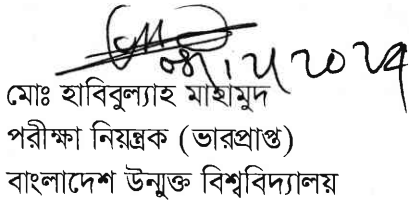 মোঃ হাবিবুল্যাহ মাহামুদ
পরীক্ষা নিয়ন্ত্রক (ভারপ্রাপ্ত)
বাংলাদেশ উন্মুক্ত বিশ্ববিদ্যালয়